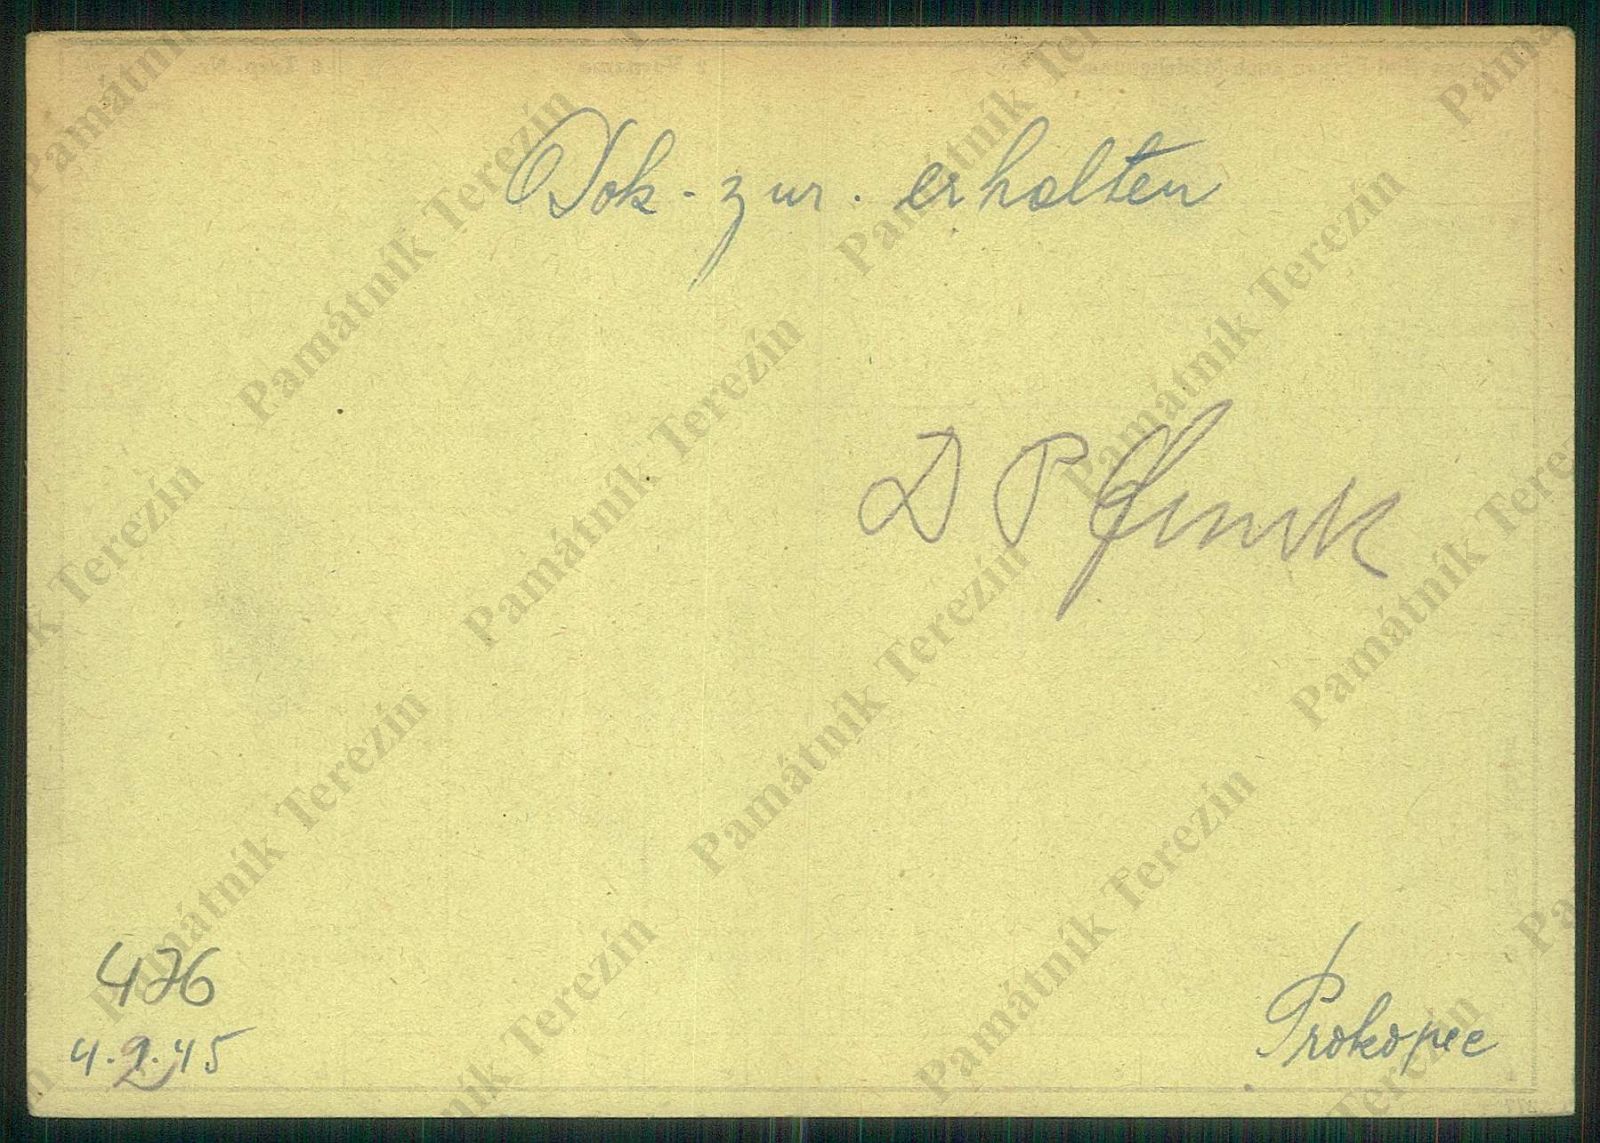 Dok - zur. erhalten
D P
476
4.2.45
Prokopec
Památník Terezín